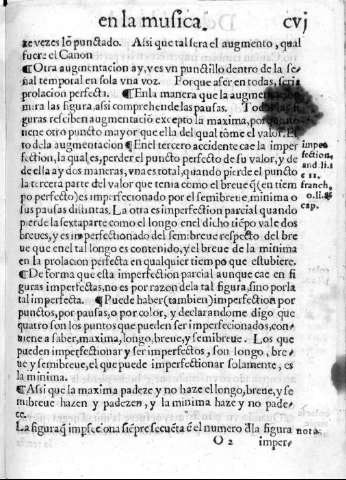 en la musica. cvj
ze vezes lõ punctado. Assi que tal sera el augmento, qual
fuere el Canon
¶Otra augmentacion ay, ves vn punctillo dentro de la se
ñal temporal en sola vna voz. Porque a ser en todas, seria
prolacion perfecta. ¶En la manera que la augmenta
mira las figura, assi comprehende las pausas. gu
guras resciben augmentaciõ excepto la maxima, por
tiene otro puncto mayor que ella del qual tome el valor.
to de la augmentacion ¶En el tercero accidente cae la imper
fection, la qual es, perder el puncto perfecto de su valor, y de
de ella ay dos maneras, vna es total, quando pierde el puncto
la tercera parte del valor que tenia como el breue q̃(en tiem
po perfecto)es imperfecionado por el semibreue, minima o
sus pausas distintas. La otra es imperfection parcial quando
pierde la sexta parte como el longo en el dicho tiẽpo vale dos
breues, y es imperfecionado del semibreue respecto del bre
ue que en el tal longo es contenido, y el breue de la minima
en la prolacion perfecta en qualquier tiempo que estubiere.
¶De forma que esta imperfection parcial aunque cae en fi
guras imperfectas, no es por razon de la tal figura, sino por la
tal imperfecta. ¶Puede haber(tambien)imperfection por
punctos, por pausas, o por color, y declarandome digo que
quatro son los puntos que pueden ser imperfecionados, con
uiene a saber, maxima, longo, breue, y semibreue. Los que
pueden imperfectionar y ser imperfectos, son longo, bre-
ue y semibreue, el que puede imperfectionar solamente, es
la minima.
¶Assi que la maxima padeze y no haze el longo, breue, y se
mibreue hazen y padezen, y la minima haze y no pade-
ce.
La figura q̃ impfecciona siẽpre se cuẽta ẽ el numero d̃ la figura
O 2 imper-
impe
fection,
and. li. 1
c 11.
franch.
o. li. 2
cap.
nota.